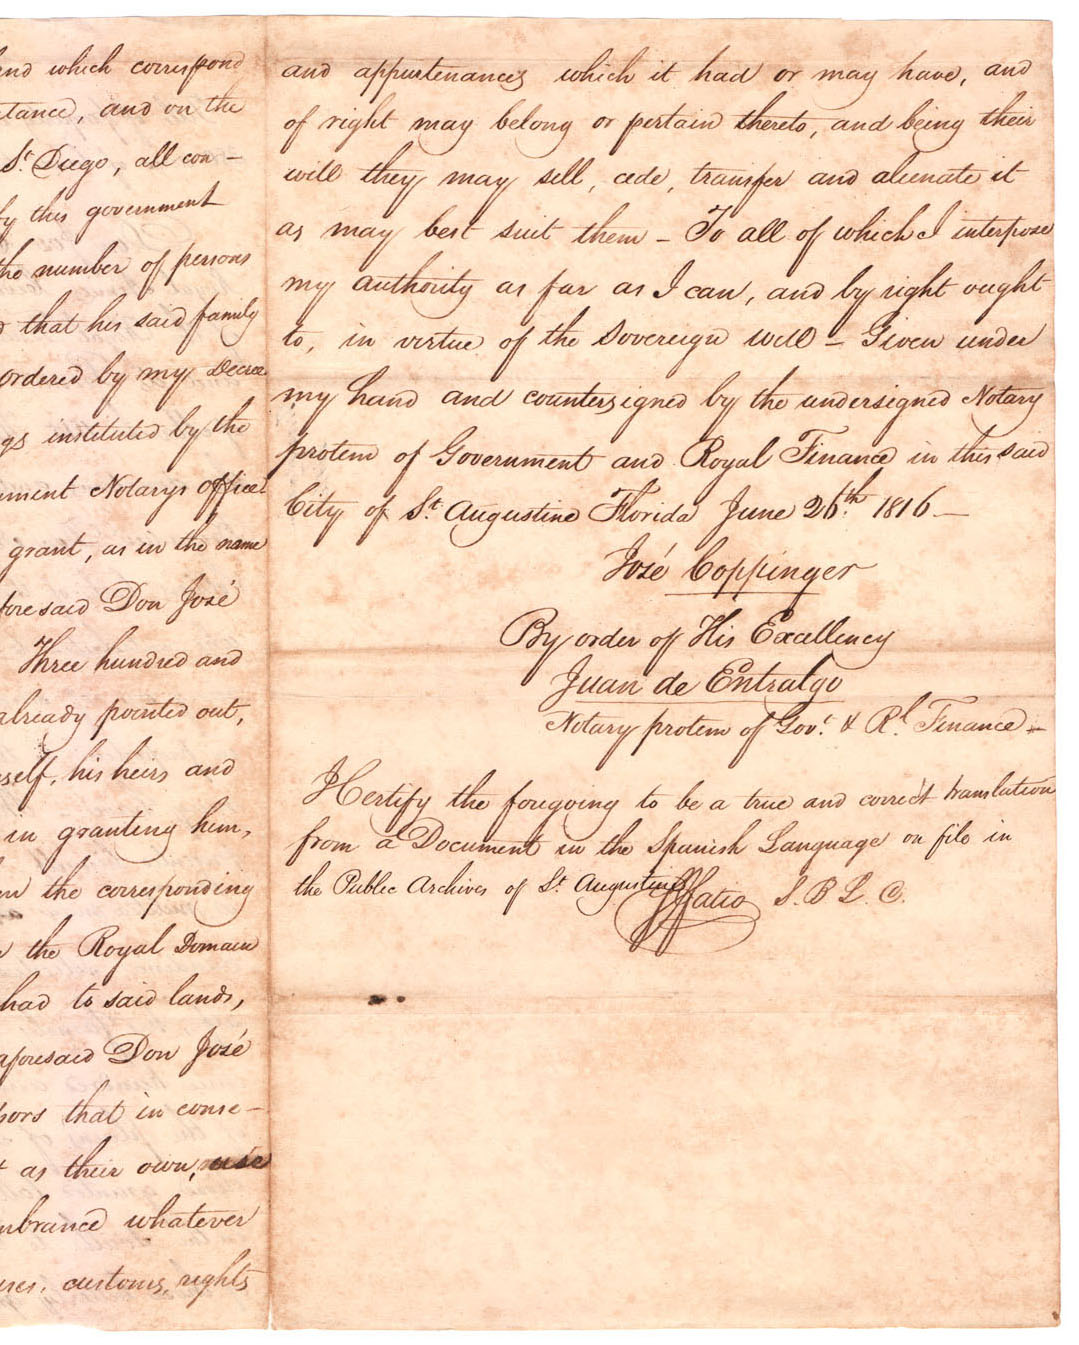 and which correspond
tance, and on the
St. Diego, all con-
by this government
the number of persons
that his said family
ordered by my Decree
gs instituted by the
nment Notarys office
grant, as in the name
foresaid Don José
Three hundred and
already pointed out,
self, his heirs and
in granting him,
the corresponding
the Royal Domain
had to said lands,
aforesaid Don José
sors that in conse-
as their own,
mbrance whatever
uses, customs, rights
and appurtenances which it had or may have, and
of right may belong or pertain thereto, and being their
will they may sell, cede, transfer and alienate it
as may best suit them - To all of which I interpose
my authority as far as I can, and by right ought
to, in virtue of the Sovereign will - Given under
my hand and countersigned by the undersigned Notary
protem of Government and Royal Finance in this said
City of St. Augustine Florida June 26th. 1816 -
José Coppinger
By order of His Excellency
Juan de Entralgo
Notary protem of Govt. & Rl. Finance -
I Certify the foregoing to be a true and correct translation
from a Document in the Spanish Language on file in
the Public Archives of St. Augustine
S. B. L. C.